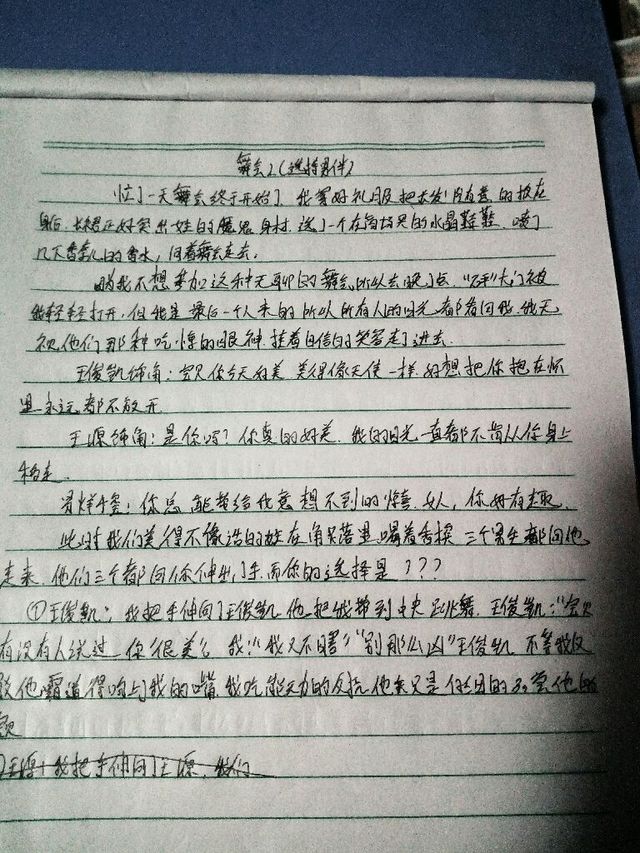 舞会2(选择男伴)
忙了一天舞会终于开始了 我穿好礼服把长发 的披在
身后 长裙正好突出 的魔鬼身材, 了一个 的水晶 喷了
几下香 的香水, 向着舞会走去。
因我不想参加这种无聊的舞会所以去晚了点. "砰"大门被
我轻轻打开, 但我是最后一个人来的所以所有人的目光都 着向我. 我无
视他们那种吃惊的眼神 挂着自信的笑容走了进去.
王俊凯 角: 宝贝你今天好美 美得像天使一样 好想把你抱在怀
里永远都不放开
王源 角: 是你吗? 你真的好美. 我的目光一直都不肯从你身上
移走.
易烊千玺: 你总能带给我意想不到的惊喜 女人, 你好有趣.
此时我们美得不像 的 在角落里喝着香槟 三个男生都向他
走来. 他们三个都向你伸出了手 而你的选择是???
①王俊凯: 我把手伸向了王俊凯 他一把我带到中央跳舞. 王俊凯: "宝贝
有没有人说过 你很美? 我: "我又不瞎" "别那么凶" 王俊凯 不等我反
他霸道得吻上我的嘴 我只能无力的反抗 他 只是 的 他的
王源: 我把手伸向了王源. 我们